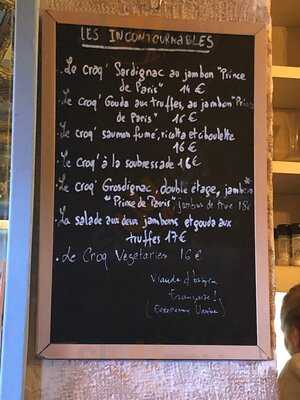 LES INCONTOURNABLES
. Le croq' Sordignac au jambon "Prince
de Paris" 14 €
. Le croq' Gouda aux truffes, au jambon "Prince
de Paris" 15 €
. Le croq' saumon fumé, ricotta et ciboulette
16 €
. Le croq' à la soubressade 16 €
. Le croq' Grosdignac, double étage, jambon
"Prince de Paris" 18 €
. La salade aux deux jambons et gouda aux
truffes 17 €
. Le Croq Végétarien 16 €
Viande d'origine
Française !